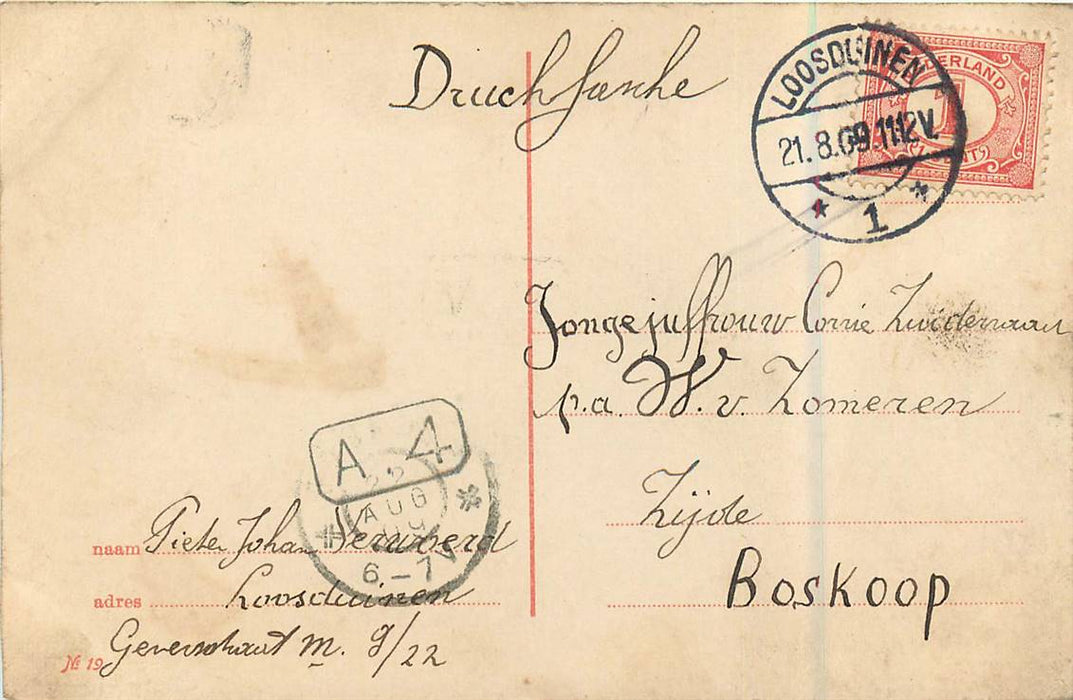 Drucksache
LOOSDUINEN
21.8.09.11.12V.
1
NEDERLAND
1
CENT
Jongejuffrouw Corrie Zwidernaart
p.a. W. v. Zomeren
Zijde
Boskoop
A 4
22
AUG
09
6-7V
naam Pieter Johan
adres Loosduinen
M. 9/22
№ 19